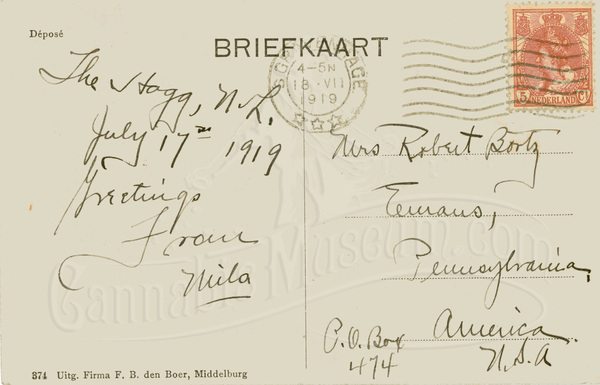 Déposé
BRIEFKAART
4-5N
18·VII
1919
5 NEDERLAND CT
The Hagg, N.L.
July 17th 1919
Greetings
From
Mila
Mrs Robert Bortz
Emaus,
Pennsylvania,
America
U.S.A
P.O. Box
474
CannabisMuseum.com
374 Uitg. Firma F. B. den Boer, Middelburg